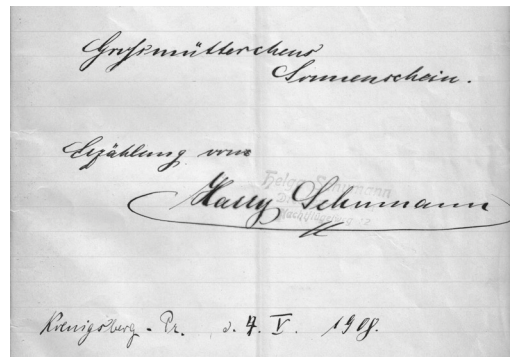 Grossmütterchens
Sonnenschein.
Erzählung von
Helga Schumann
Harry Schumann
Koenigsberg - Pr. d. 4. V. 1908.